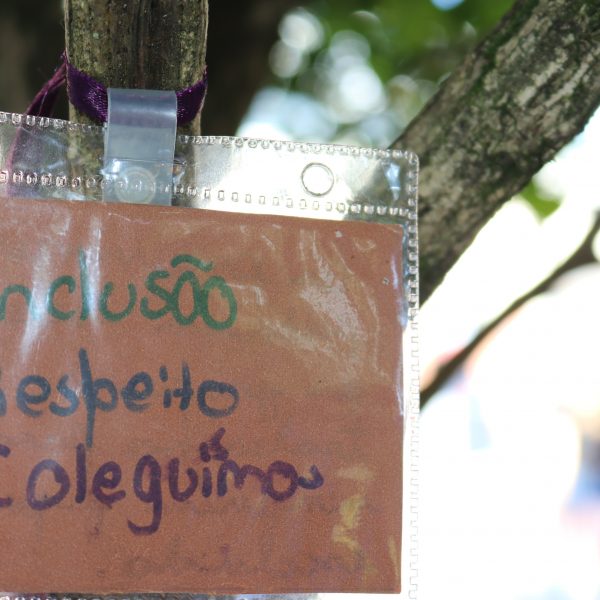 nclusão
Respeito
Coleguismo